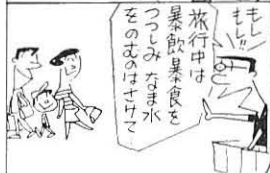 もしもし!!
旅行中は
暴飲暴食を
つつしみ なま水
をのむのはさけて